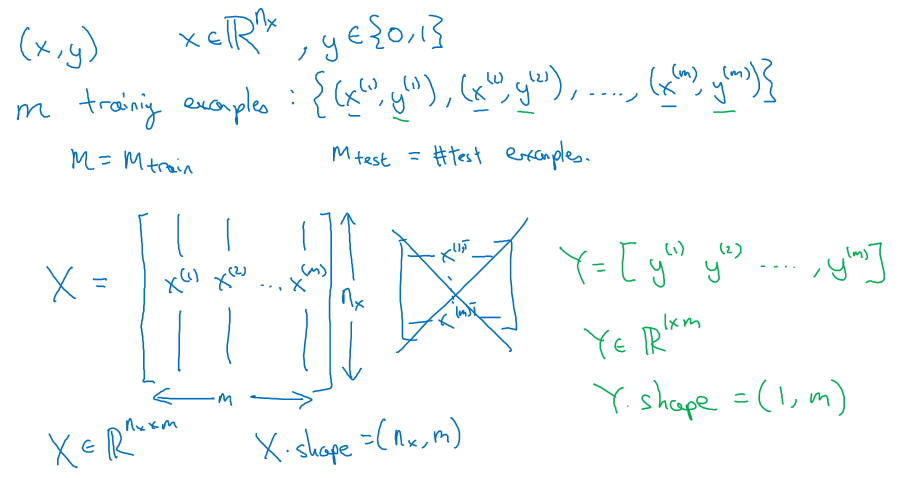 (x, y) x ∈ ℝ^{n_x}, y ∈ {0, 1}
m training examples : {(x^{(1)}, y^{(1)}), (x^{(2)}, y^{(2)}), ...., (x^{(m)}, y^{(m)})}
M = M_{train} M_{test} = #test examples.
X = [x^{(1)} x^{(2)} ... x^{(m)}] n_x
m
x^{(1)T}
x^{(m)T}
Y = [y^{(1)} y^{(2)} ...., y^{(m)}]
Y ∈ ℝ^{1×m}
Y.shape = (1, m)
X ∈ ℝ^{n_x × m} X.shape = (n_x, m)